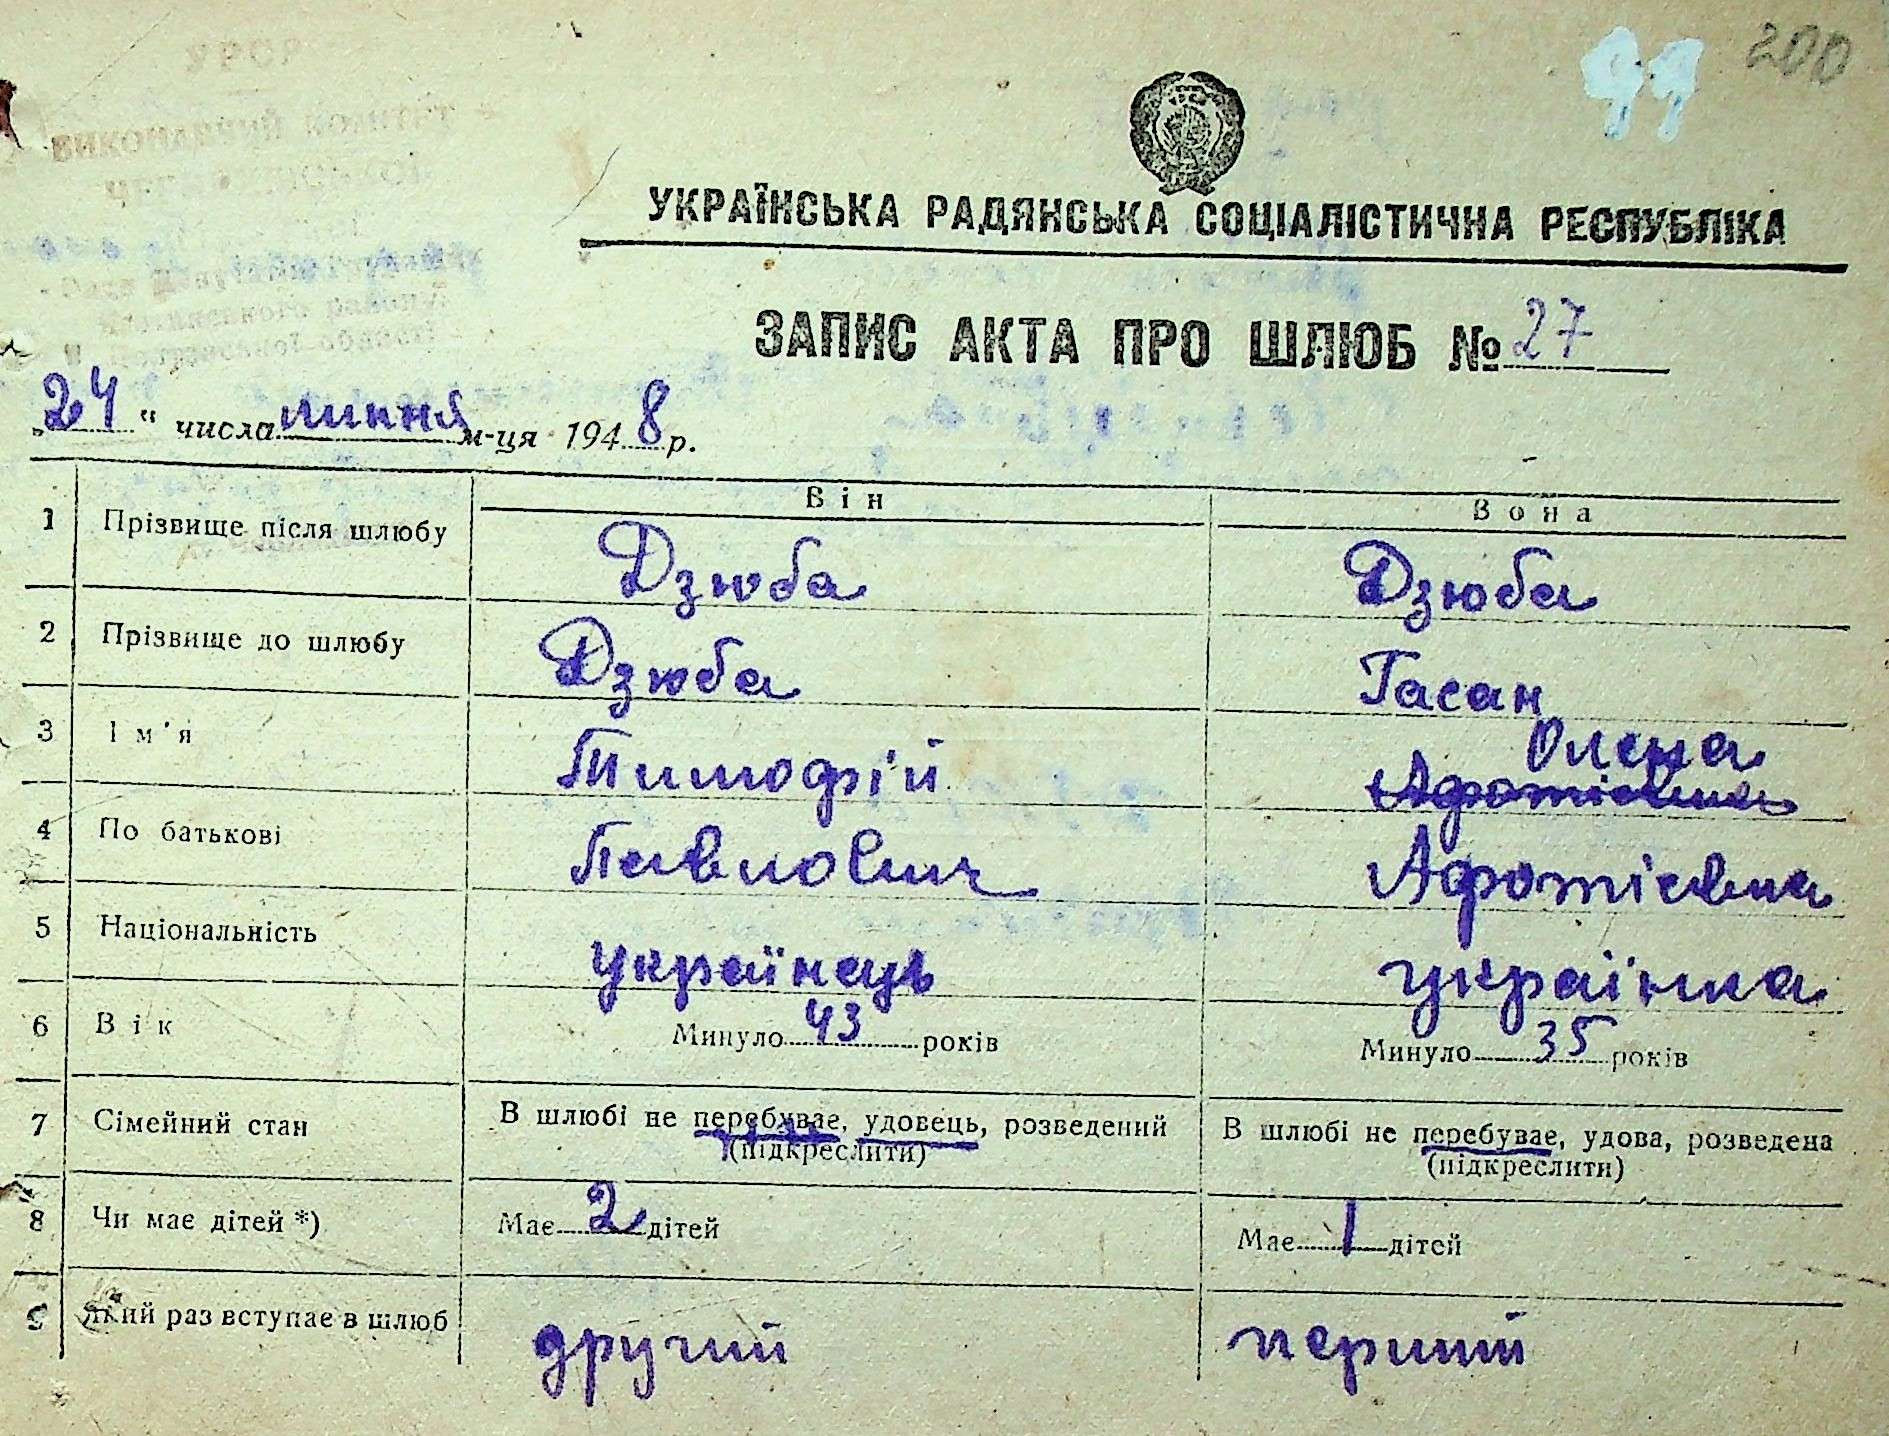 200
УРСР
ВИКОНАВЧИЙ КОМІТЕТ
УКРАЇНСЬКА РАДЯНСЬКА СОЦІАЛІСТИЧНА РЕСПУБЛІКА
ЗАПИС АКТА ПРО ШЛЮБ № 27
„24“ числа липня м-ця 1948 р.
Він Вона
1 Прізвище після шлюбу Дзюба Дзюба
2 Прізвище до шлюбу Дзюба Гасан
3 Ім'я Тимофій Олена Афотіевна
4 По батькові Павлович Афотіевна
5 Національність українець українка
6 Вік Минуло 43 років Минуло 35 років
7 Сімейний стан В шлюбі не перебуває, удовець, розведений В шлюбі не перебуває, удова, розведена
(підкреслити) (підкреслити)
8 Чи має дітей *) Має 2 дітей Має 1 дітей
9 Який раз вступає в шлюб другий перший